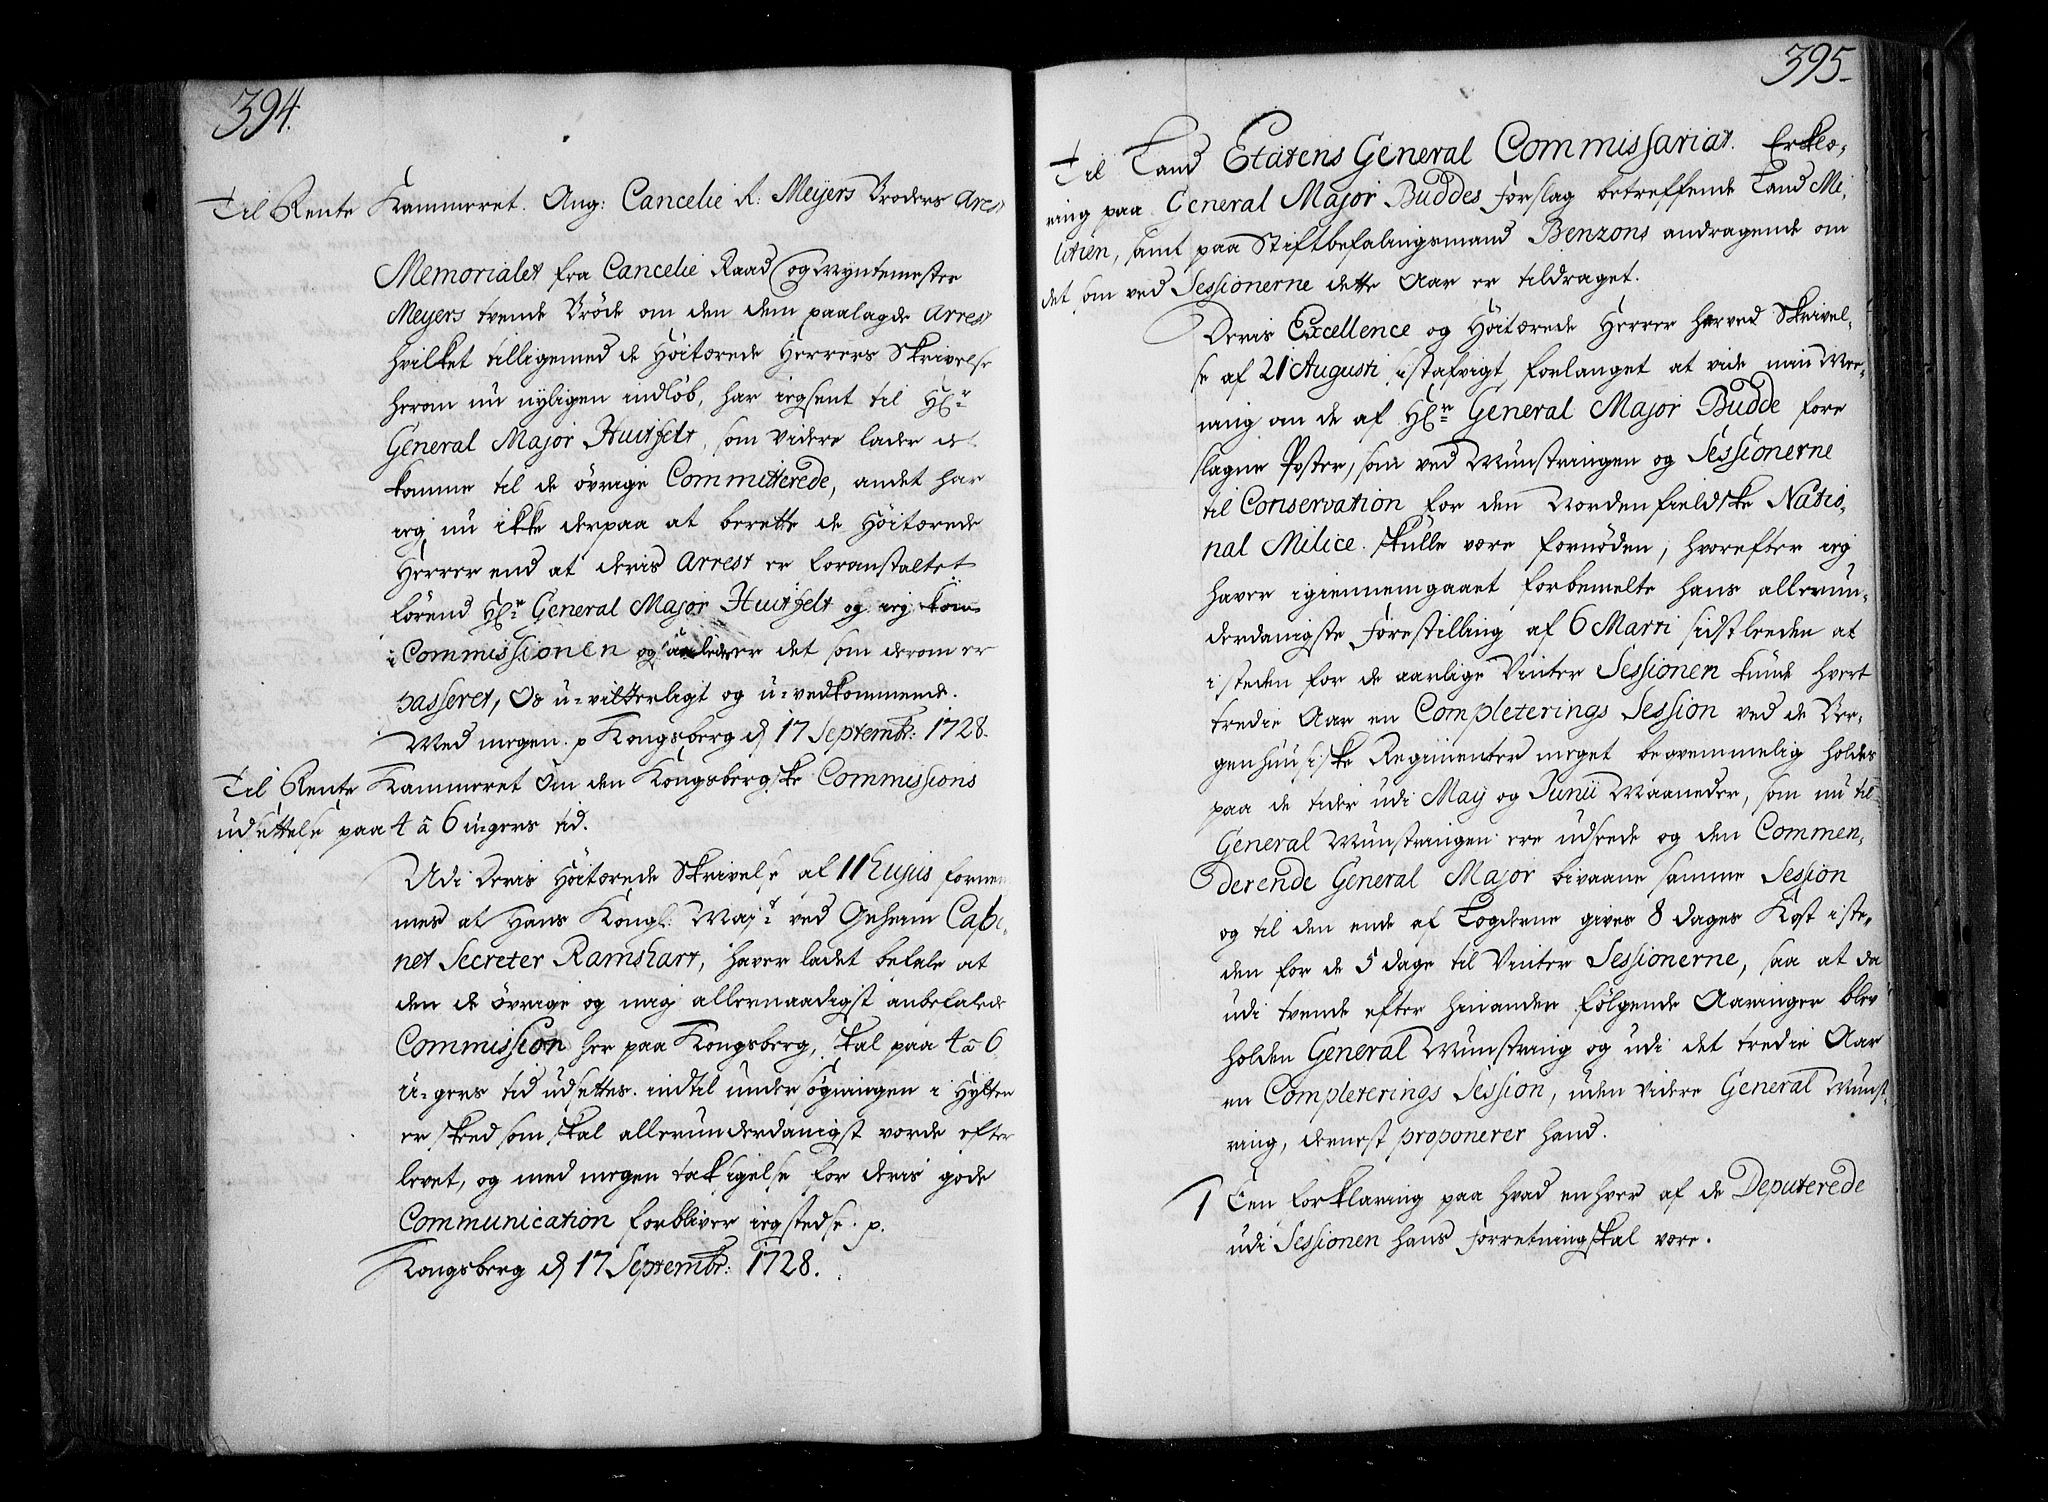 394.
Til Rente Kammeret. Ang: Cancelie R: Meÿers Broders Arest
Memorialet fra Cancelie Raad og Myntemester
Meyers tvende Brøde om den dem paalagde Arrest
hvilket tilligemed de Høitærede Herrers Skrivelse
herom nu nyligen indløb, har iegsent til Hr
General Major Huitfelt, som videre lader det
komme til de øvrige Committerede, andet har
ieg nu ikke derpaa at berette de Høitærede
Herrer end at deris Arrest er foranstaltet
førend Hr General Major Huitfelt og ieg kom
i Commissionen og saaledes er det som derom er
passeret, Os u-vitterligt og u-vedkommende.
Med megen. p Kongsberg d 17 Septembr: 1728.
Til Rente Kammeret Om den Kongsbergske Commissions
udsettelse paa 4 â 6 ugers tid.
Udi Deris Høitærede Skrivelse af 11 hujus fornem
mes at Hans Kongl: Mayt ved Geheim Cabi-
net Secreter Ramshart, haver ladet befale at
den de øvrige og mig allernaadigst anbefalede
Commission her paa Kongsberg, skal paa 4 â 6
u-gers tid udsettes. indtil undersøgningen i Hylten
er skeed som skal allerunderdanigst vorde efter
levet, og med megen taksigelse for deris gode
Communication forbliver iegstedse. p.
Kongsberg d 17 Septembr: 1728.
395.
Til Land Etatens General Commissariat. Erklæ-
ring paa General Major Buddes forslag betreffende Land Mi-
litien, samt paa Stiftbefalingsmand Benzons andragende om
det som ved Sessionerne dette Aar er tildraget.
Deris Excellence og Høitærede Herrer herved Skrivel-
se af 21 Augusti istafvigt, forlanget at vide min Mee-
ning om de af Hr General Major Budde fore
slagne Poster, som ved Munstringen og Sessionerne
til Conservation for den Nordenfieldske Natio-
nal Milice skulle være fornøden, hvorefter ieg
haver igiennemgaaet forbemelte hans allerun-
derdanigste Forestilling af 6 Marti sidstleeden at
isteden for de aarlige Vinter Sessionen kunde hvert
tredie Aar en Completerings Session ved de Ber-
genhuusiske Regimenter meget beqvemmelig holdes
paa de tider udi Maÿ og Junii Maaneder, som nu til
General Munstringen ere udseede og den Commen-
derende General Major bivaane samme Session
og til den ende af Lægderne gives 8 dages Kost iste-
den for de 5 dage til Vinter Sessionerne, saa at da
udi tvende efter hinanden følgende Aaringer blev
holden General Munstring og udi det tredie Aar
en Completerings Session, uden videre General Munst-
ring, dernest proponerer hand.
1 Een forklaring paa hvad enhver af de Deputerede
udi Sessionen hans forretning skal være.